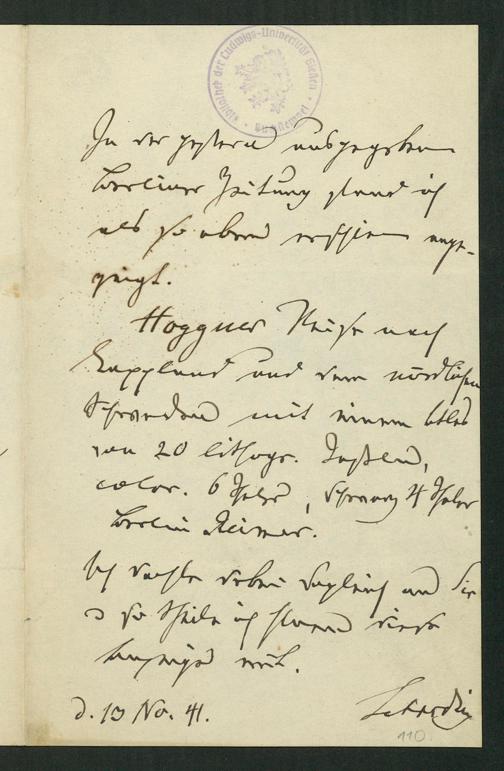 Bibliothek der Ludwigs-Universität Gießen
In der gestern ausgegebenen
Berliner Zeitung stand ich
als so eben erschienen ange-
zeigt.
Hogguer Reise nach
Lappland und dem nördlichen
Schweden mit einem Atlas
von 20 lithogr. Tafeln,
color. 6 Thaler, schwarz 4 Thaler
Berlin Reimer.
Ich dachte dabei sogleich an Sie
u so theile ich Ihnen diese
Anzeige mit.
d. 13 No. 41.
110.